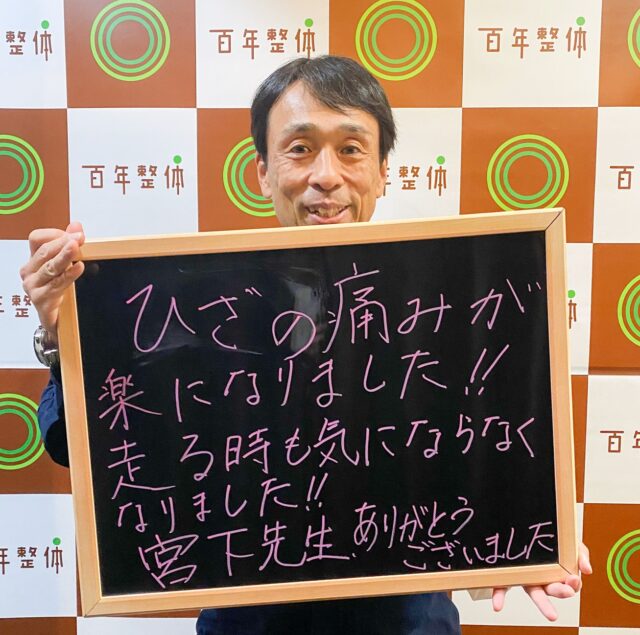 百年整体
百年整体
百年整体
百年整体
百年整体
百年整体
百年整体
ひざの痛みが
楽になりました!!
走る時も気にならなく
なりました!!
宮下先生、ありがとう
ございました